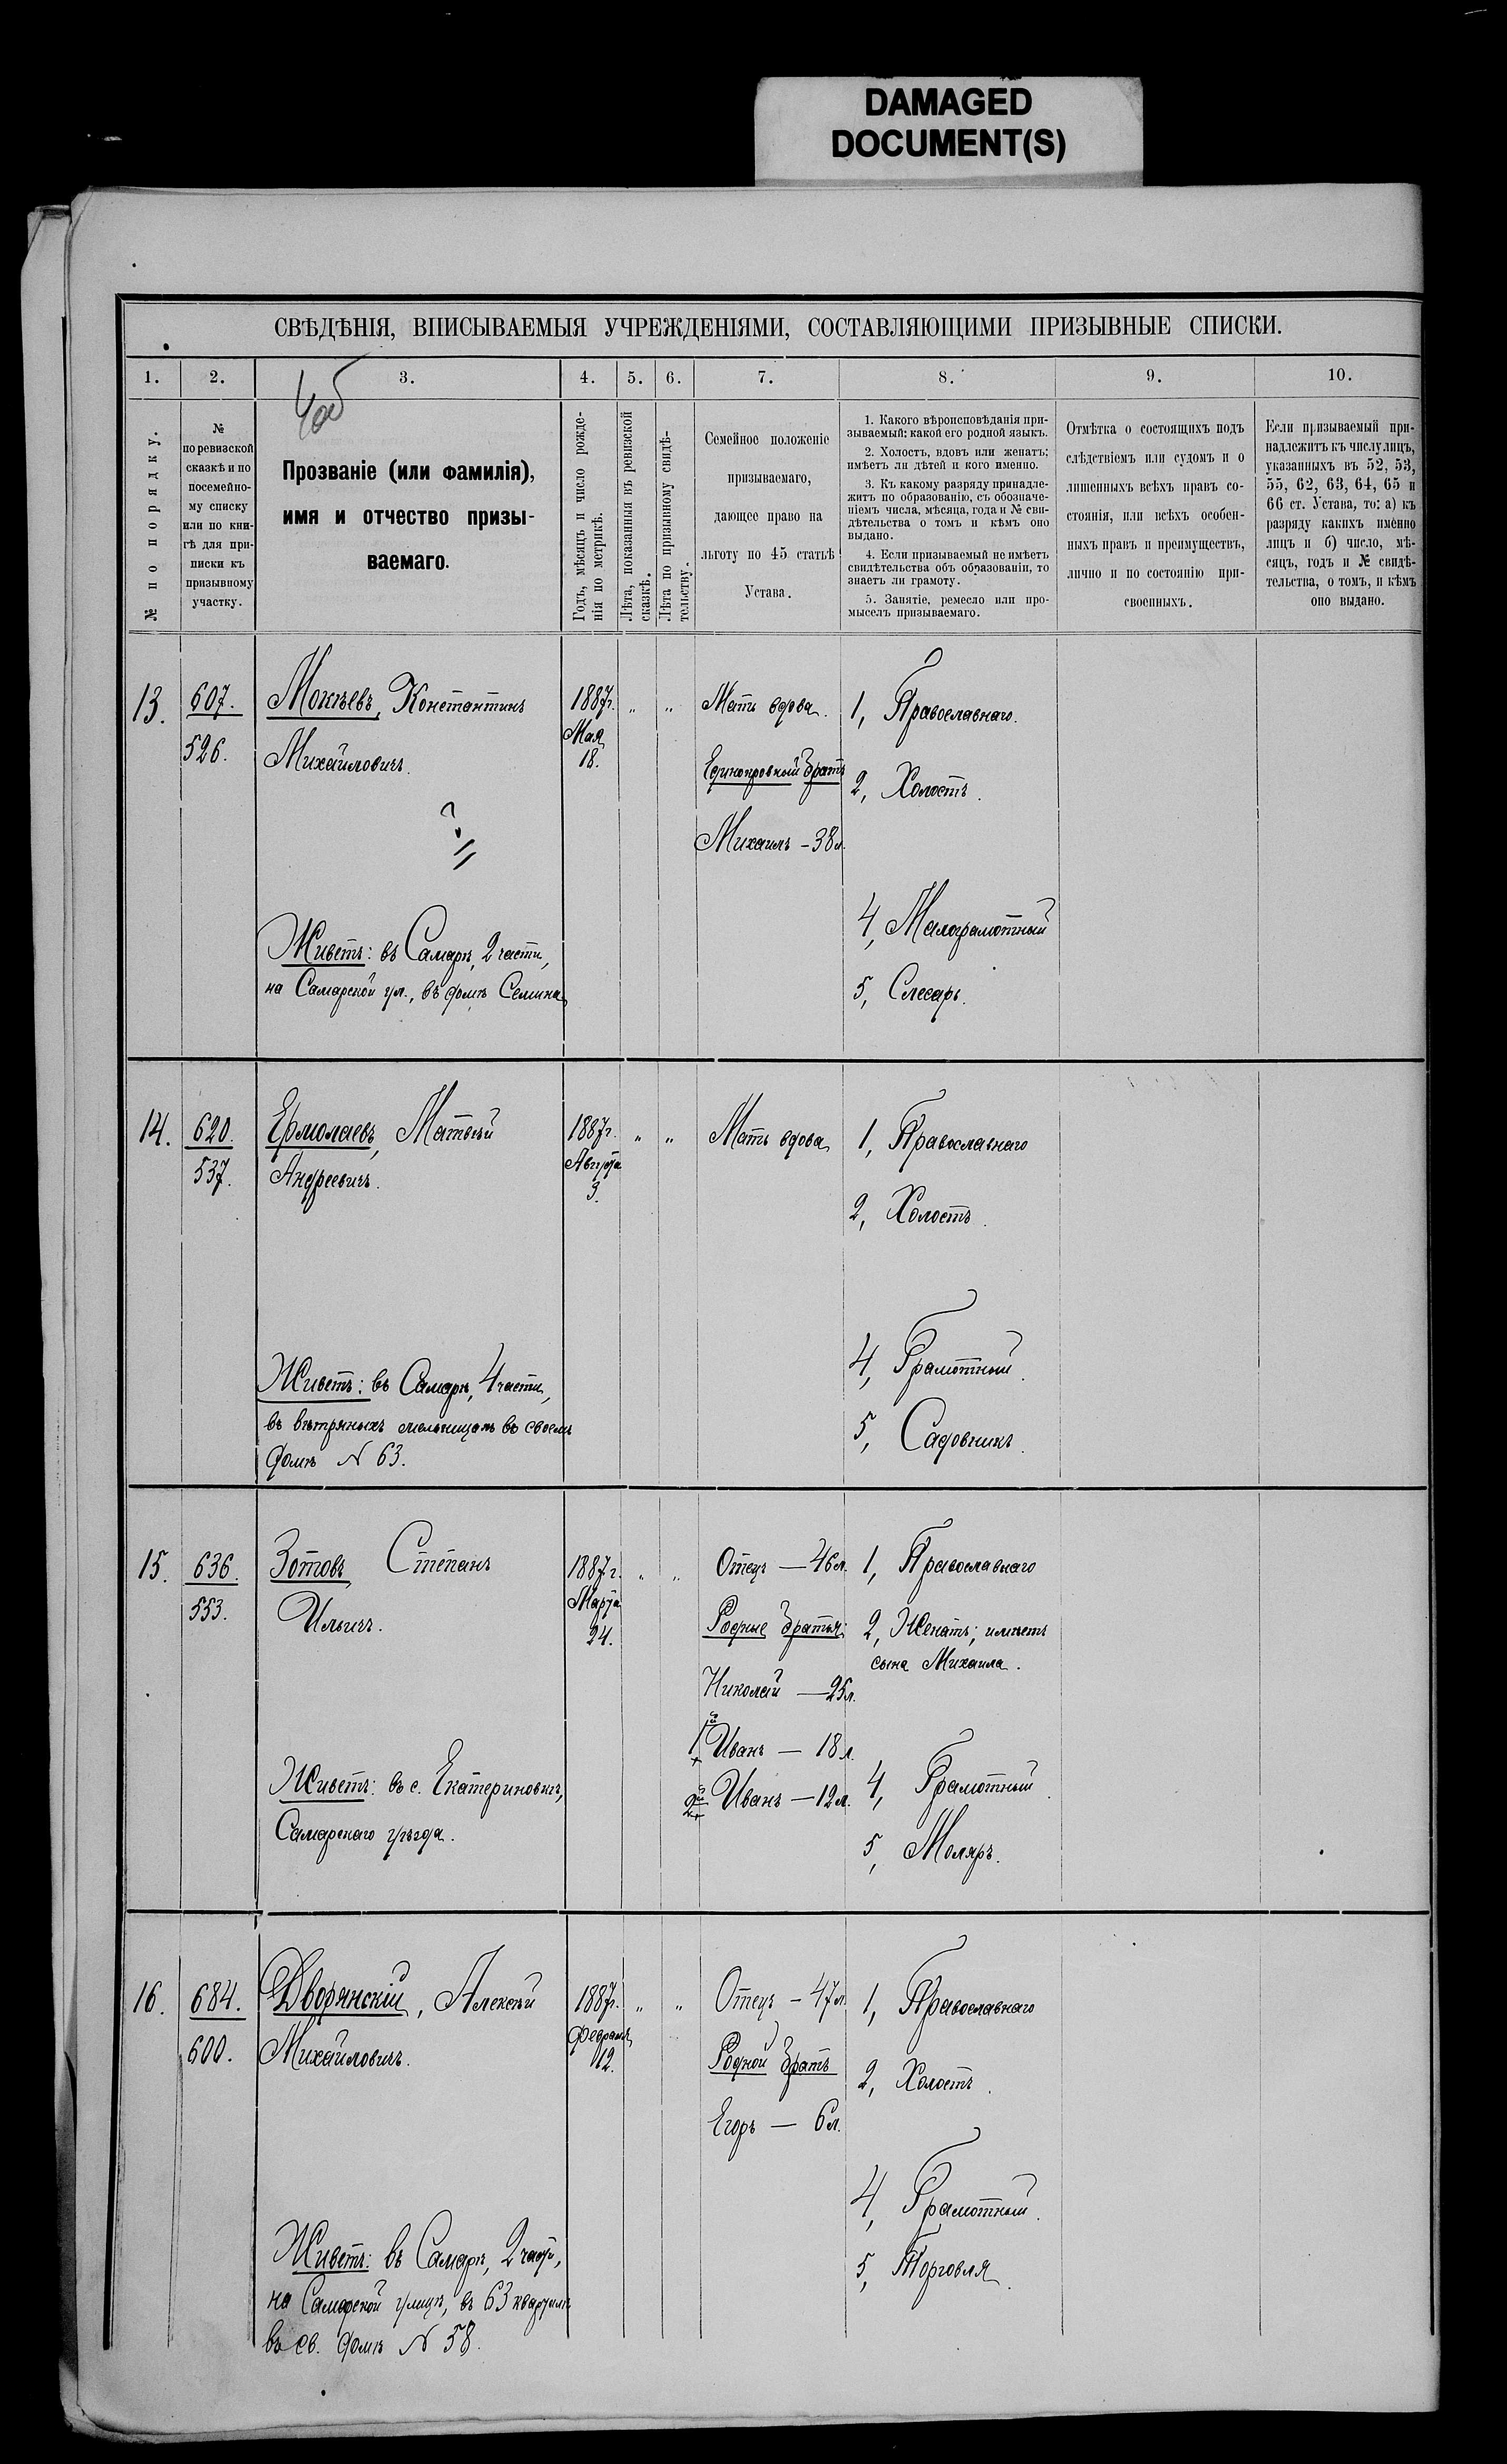 DAMAGED
DOCUMENT(S)
СВѢДѢНІЯ, ВПИСЫВАЕМЫЯ УЧРЕЖДЕНІЯМИ, СОСТАВЛЯЮЩИМИ ПРИЗЫВНЫЕ СПИСКИ.
1. 2. 3. 4. 5. 6. 7. 8. 9. 10.
№ по порядку.
№
по ревизской
сказкѣ и по
посемейно-
му списку
или по кни-
гѣ для при-
писки къ
призывному
участку.
Прозваніе (или фамилія),
имя и отчество призы-
ваемаго.
Годъ, мѣсяцъ и число рожде-
нія по метрикѣ.
Лѣта, показанныя въ ревизской
сказкѣ.
Лѣта по призывному свидѣ-
тельству.
Семейное положеніе
призываемаго,
дающее право на
льготу по 45 статьѣ
Устава.
1. Какого вѣроисповѣданія при-
зываемый: какой его родной языкъ.
2. Холостъ, вдовъ или женатъ;
имѣетъ ли дѣтей и кого именно.
3. Къ какому разряду принадле-
житъ по образованію, съ обозначе-
ніемъ числа, мѣсяца, года и № сви-
дѣтельства о томъ и кѣмъ оно
выдано.
4. Если призываемый не имѣетъ
свидѣтельства объ образованіи, то
знаетъ ли грамоту.
5. Занятіе, ремесло или про-
мыселъ призываемаго.
Отмѣтка о состоящихъ подъ
слѣдствіемъ или судомъ и о
лишенныхъ всѣхъ правъ со-
стоянія, или всѣхъ особен-
ныхъ правъ и преимуществъ,
лично и по состоянію при-
своенныхъ.
Если призываемый при-
надлежитъ къ числу лицъ,
указанныхъ въ 52, 53,
55, 62, 63, 64, 65 и
66 ст. Устава, то: а) къ
разряду какихъ именно
лицъ и б) число, мѣ-
сяцъ, годъ и № свидѣ-
тельства, о томъ, и кѣмъ
оно выдано.
13.
607.
526.
Мокѣевъ, Константинъ
Михайловичъ.
?
Живетъ: въ Самарѣ, 2 части,
на Самарской ул., въ домѣ Семина
1887г.
Мая
18.
" "
Мать вдова.
Единокровный братъ
Михаилъ - 38 л.
1, Православнаго.
2, Холостъ.
4, Малограмотный
5, Слесарь.
14.
620.
537.
Ермолаевъ, Матвѣй
Андреевичъ.
Живетъ: въ Самарѣ, 4 части,
въ вѣтряныхъ мельницахъ въ своемъ
домѣ N 63.
1887г.
Августа
3.
" "
Мать вдова
1, Православнаго
2, Холостъ.
4, Грамотный.
5, Садовникъ.
15.
636.
553.
Зотовъ, Степанъ
Ильичъ.
Живетъ: въ с. Екатериновкѣ,
Самарскаго уѣзда.
1887г.
Марта
24.
" "
Отецъ — 46 л.
Родные братья:
Николай — 25 л.
1й Иванъ — 18 л.
2й Иванъ — 12 л.
1, Православнаго
2, Женатъ; имѣетъ
сына Михаила.
4, Грамотный.
5, Моляръ.
16.
684.
600.
Дворянскій, Алексѣй
Михайловичъ.
Живетъ: въ Самарѣ, 2 части,
на Самарской улицѣ, въ 63 кварталѣ
въ св. домѣ N 58.
1887г.
Февраля
12.
" "
Отецъ - 47 л.
Родной братъ
Егоръ — 6 л.
1, Православнаго
2, Холостъ.
4, Грамотный.
5, Торговля.